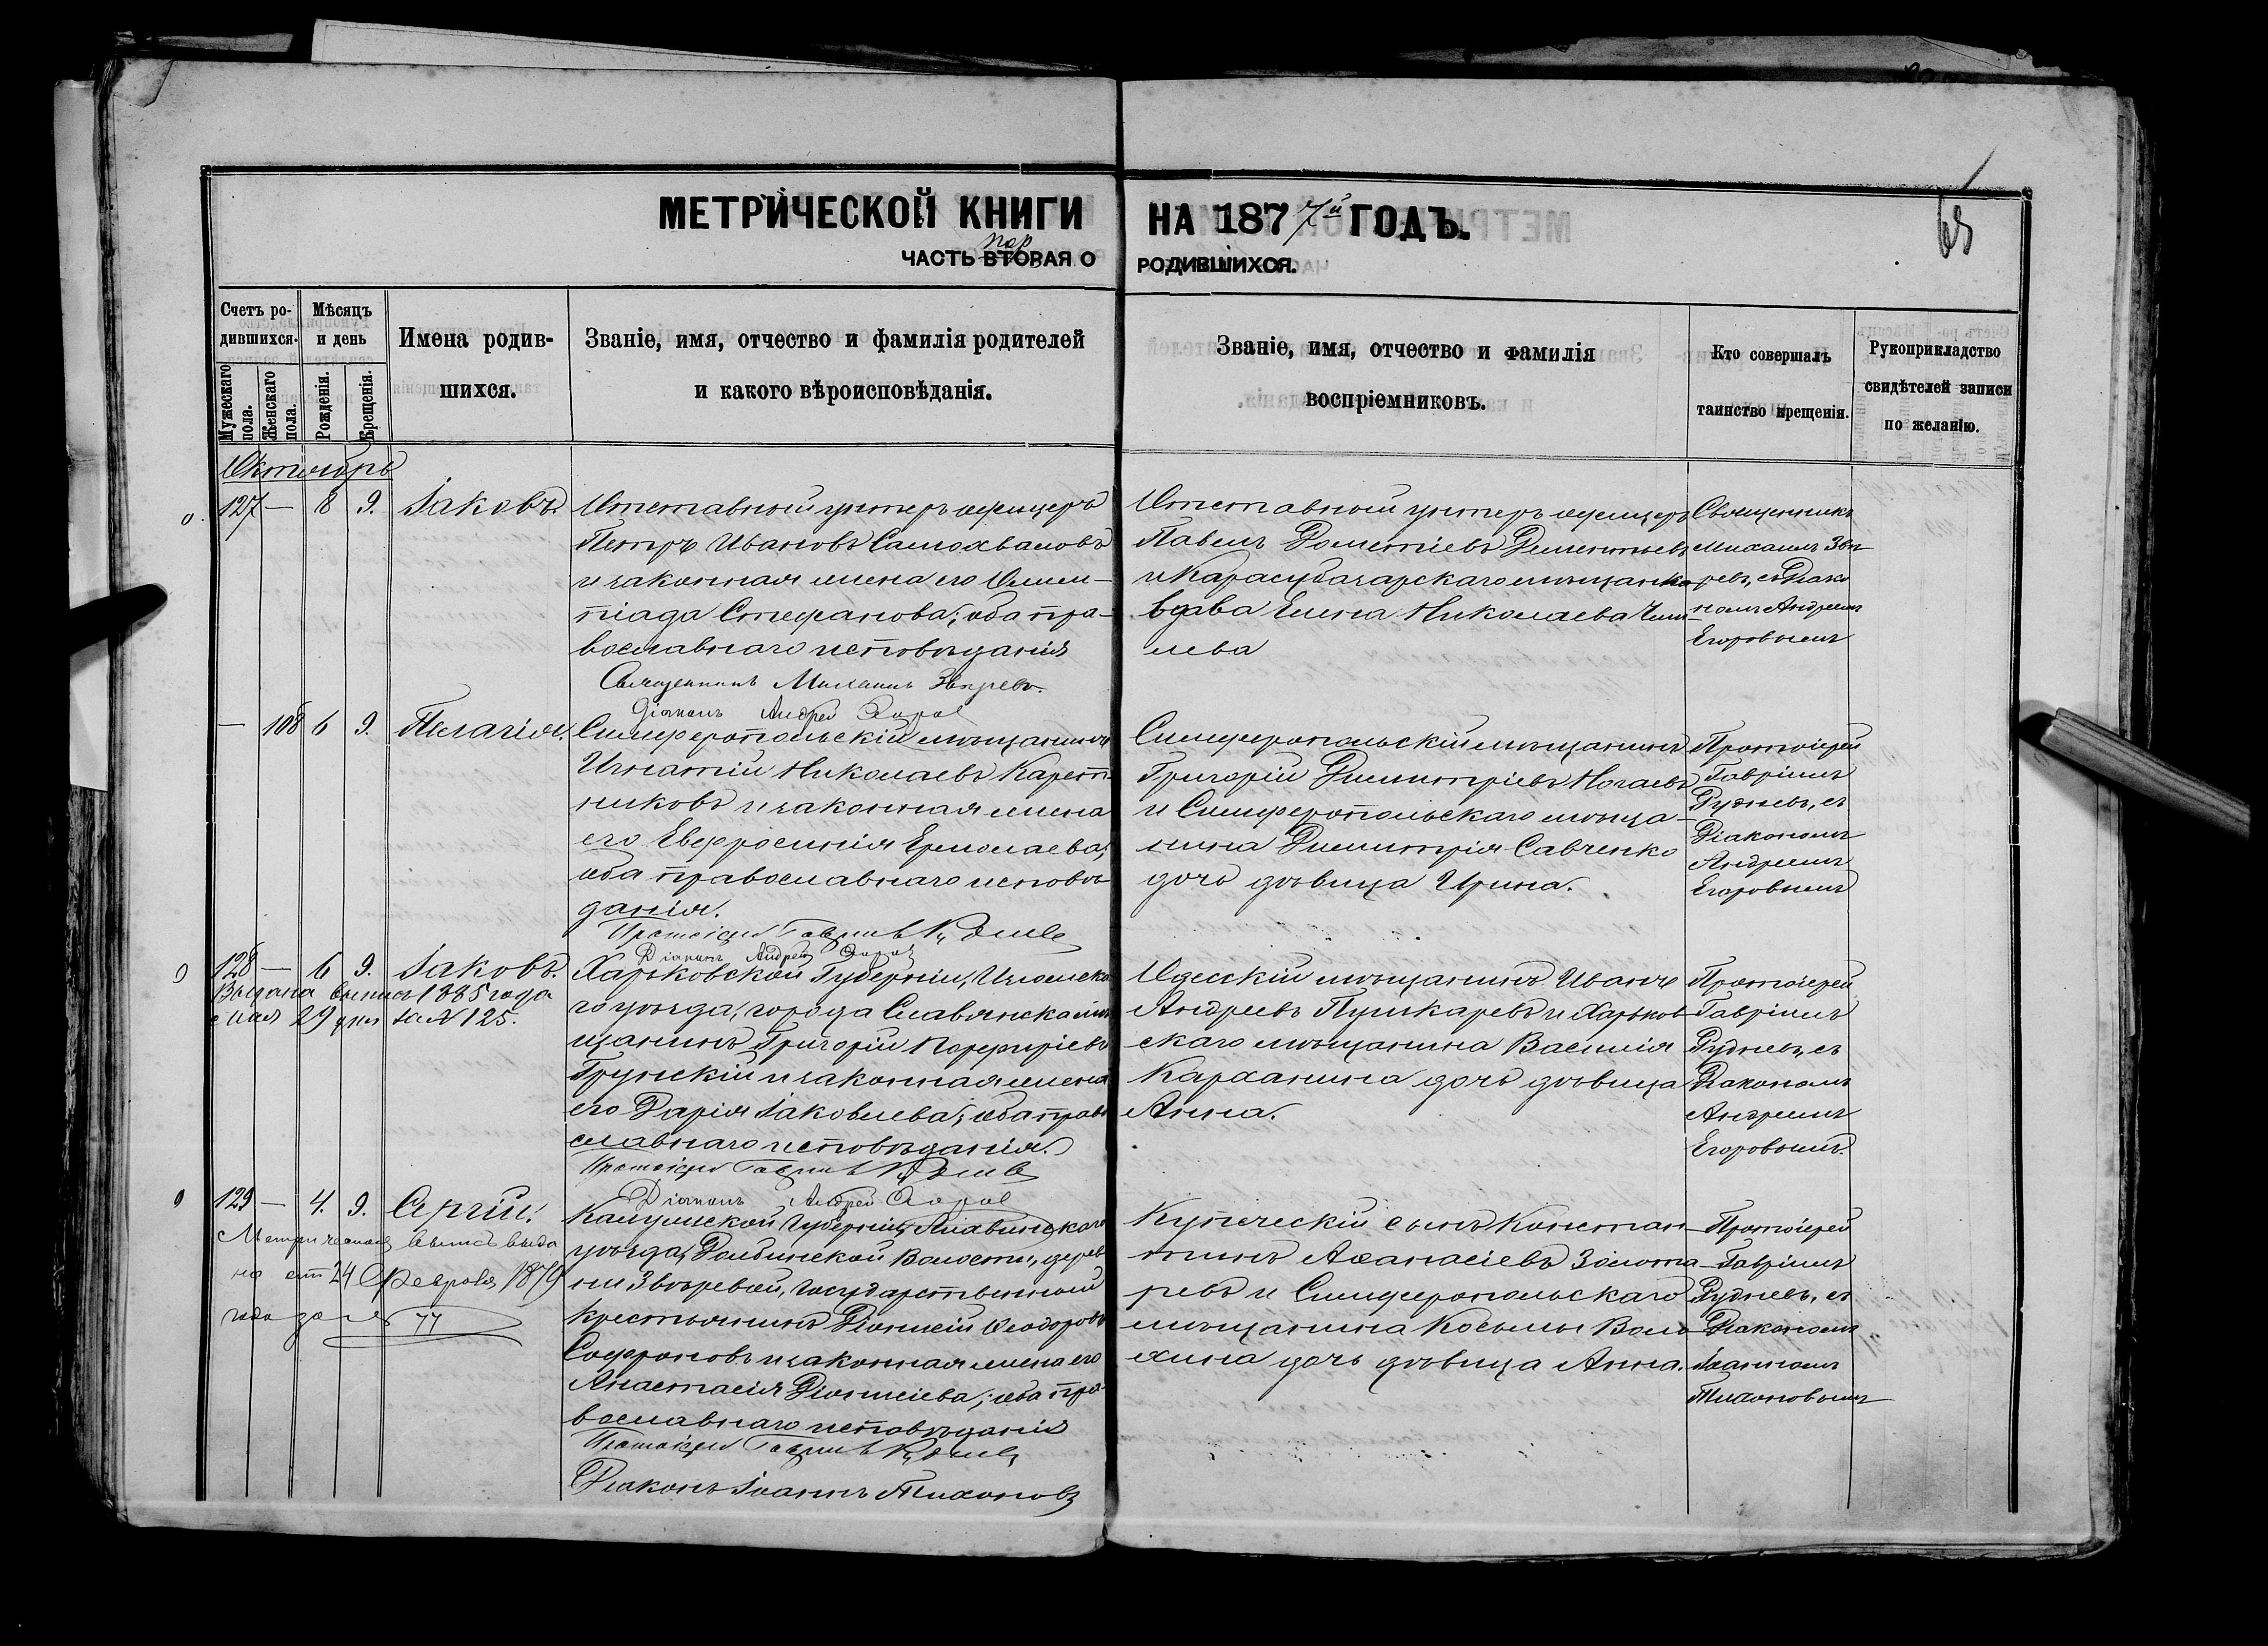 МЕТРИЧЕСКОЙ КНИГИ НА 1877й ГОДЪ.
65
пер
ЧАСТЬ ВТОРАЯ О РОДИВШИХСЯ.
Счетъ ро-
дившихся.
Мужескаго пола.
Женскаго пола.
Мѣсяцъ
и день
Рожденія.
Крещенія.
Имена родив-
шихся.
Званіе, имя, отчество и фамилія родителей
и какого вѣроисповѣданія.
Званіе, имя, отчество и фамилія
воспріемниковъ.
Кто совершалъ
таинство крещенія.
Рукоприкладство
свидѣтелей записи
по желанію.
Октябрь
127 — 8 9. Іаковъ.
Отставной унтеръ офицеръ
Петръ Ивановъ Самохваловъ
и законная жена его Олим-
піада Стефанова; оба пра-
вославнаго исповѣданія
Священникъ Михаилъ Звѣревъ.
Діаконъ Андрей
Отставной унтеръ офицеръ
Павелъ Дометіевъ Дементьевъ
и Карасубазарскаго мѣщанка
вдова Елена Николаева
лева
Священникъ
Михаилъ Звѣ
ревъ, съ Діако
номъ Андреемъ
Егоровымъ
— 108 6 9. Пелагія.
Симферопольскій мѣщанинъ
Игнатій Николаевъ Карет-
никовъ и законная жена
его Евфросинія Ермолаева;
оба православнаго исповѣ
данія.
Протоіерей Гавріилъ Рудневъ
Діаконъ Андрей
Симферопольскій мѣщанинъ
Григорій Димитріевъ Ногаевъ
и Симферопольскаго мѣща-
нина Димитрія Савченко
дочь дѣвица Ирина.
Протоіерей
Гавріилъ
Рудневъ, съ
Діакономъ
Андреемъ
Егоровымъ
128 — 6 9. Іаковъ.
Выдана выпись 1885 года
мая 29 дня за N 125.
Харьковской Губерніи, Изюмска
го уѣзда, города Славянска мѣ
щанинъ Григорій Порфиріевъ
Грунскій и законная жена
его Дарія Іаковлева; оба право
славнаго исповѣданія.
Протоіерей Гавріилъ Рудневъ
Діаконъ Андрей
Одесскій мѣщанинъ Иванъ
Андреевъ Пушкаревъ и Харьков
скаго мѣщанина Василія
Карханина дочь дѣвица
Анна.
Протоіерей
Гавріилъ
Рудневъ, съ
Діакономъ
Андреемъ
Егоровымъ.
129 — 4. 9. Сергій.
Метрическая выпись выда
на отъ 24 Февраля 1879
года за № 77
Калужской Губерніи, Лихвинскаго
уѣзда, Долбинской Волости, дерев
ни Звѣревой, Государственный
крестьянинъ Діонисій Ѳеодоровъ
Софроновъ и законная жена его
Анастасія Діонисіева; оба пра-
вославнаго исповѣданія
Протоіерей Гавріилъ Рудневъ
Діаконъ Іоаннъ Тихоновъ
Купеческій сынъ Констан-
тинъ Аѳанасіевъ Золота-
ревъ и Симферопольскаго
мѣщанина Косьмы Воло-
хина дочь дѣвица Анна.
Протоіерей
Гавріилъ
Рудневъ, съ
Діакономъ
Іоанномъ
Тихоновымъ